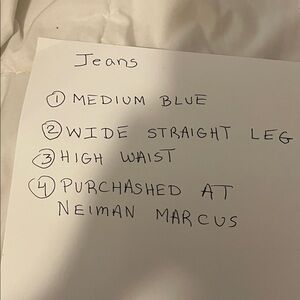 Jeans
① MEDIUM BLUE
② WIDE STRAIGHT LEG
③ HIGH WAIST
④ PURCHASHED AT
NEIMAN MARCUS